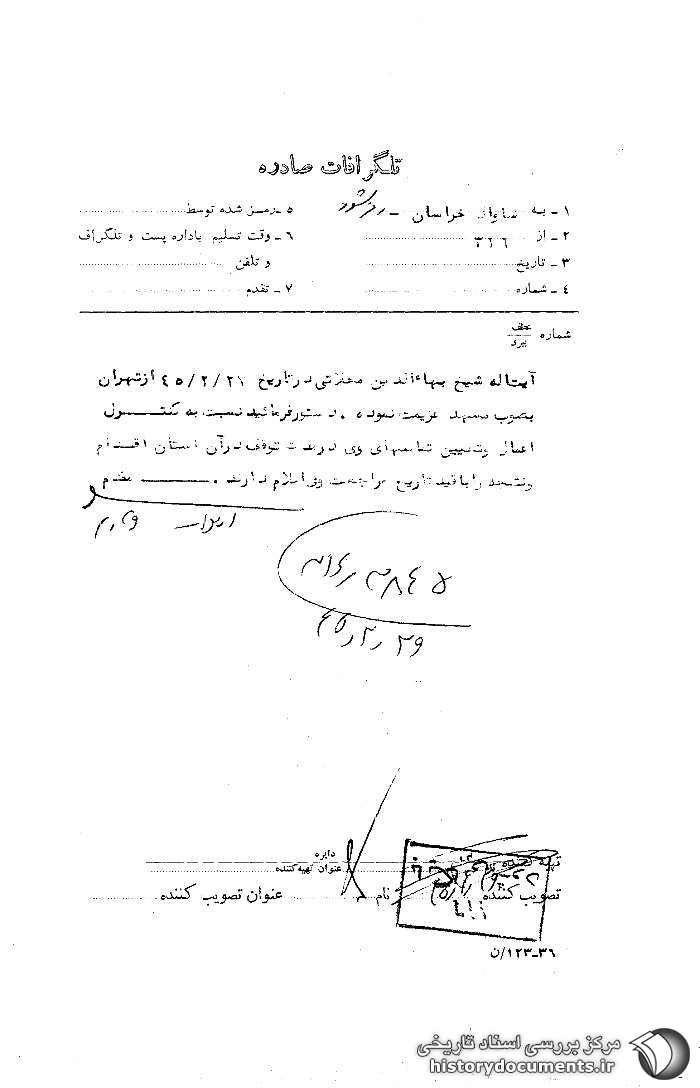 تلگرافات صادره
۱ـ به ساواک خراسان ـ رمز شود
۲ـ از ۳۱۶
۳ـ تاریخ
۴ـ شماره
۵ ـ رمز شده توسط
۶ـ وقت تسلیم باداره پست و تلگراف
و تلفن
۷ـ تقدم
شماره عطف پیرو
آیت‌اله شیخ بهاءالدین محلاتی در تاریخ ۴۵/۲/۲۱ از تهران
بصوب مشهد عزیمت نموده . دستور فرمائید نسبت به کنترل
اعمال و تعیین تماسهای وی در مدت توقف در آن استان اقدام
و نتیجه را با قید تاریخ مراجعت وی اعلام دارند . مقدم
۲۹ ر ۲ ر ۴۵
دایره
تهیه کننده
عنوان تهیه‌کننده
تصویب کننده
نام
عنوان تصویب کننده
۳۶ـ۱۲۳/ن
مرکز بررسی اسناد تاریخی
historydocuments.ir